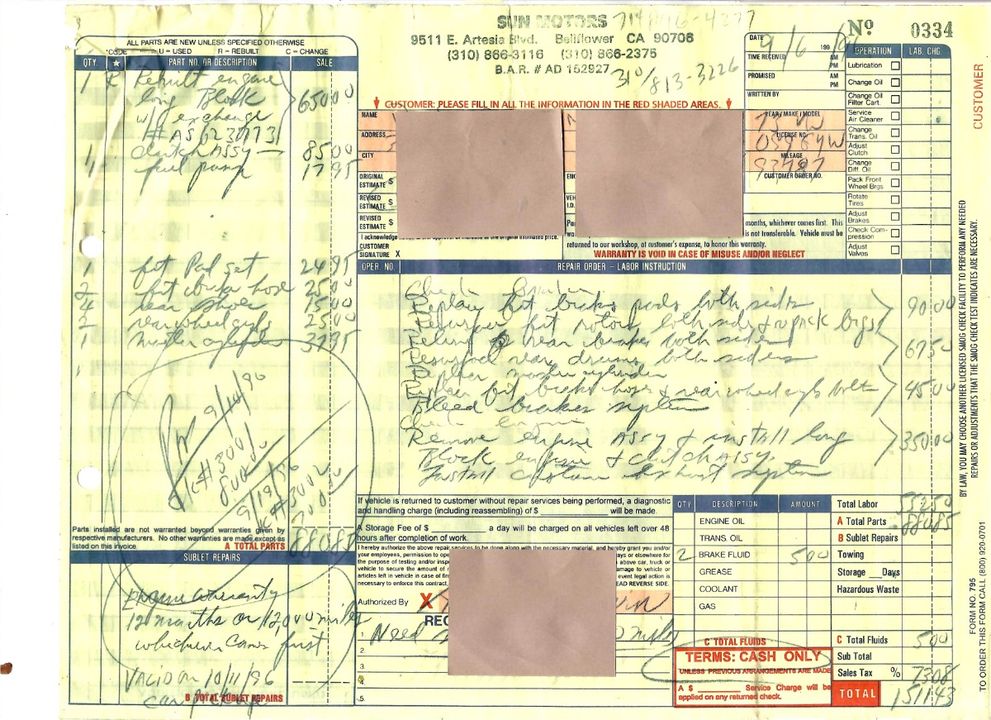 SUN MOTORS
9511 E. Artesia Blvd. Bellflower CA 90706
(310) 866-3116 (310) 866-2375
B.A.R. # AD 152927
310/813-3226
Nº 0334
CUSTOMER
ALL PARTS ARE NEW UNLESS SPECIFIED OTHERWISE
*CODE U - USED R = REBUILT C = CHANGE
QTY ★ PART NO. OR DESCRIPTION SALE
1 R Rebuilt engine
long Block 650 00
w/ exchange
# AS6230773
1 clutch ASSY 85 00
1 fuel pump 17 95
1 frt Pad set 24 95
2 frt brake hose 25 00
rear shoes 15 00
2 rear wheel cyls 25 00
1 master cylinder 37 95
9/14/96
9/19/96
Parts installed are not warranted beyond warranties given by
respective manufacturers. No other warranties are made except as
listed on this invoice.
A TOTAL PARTS 880.85
SUBLET REPAIRS
Engine Warranty
12 months or 12,000 miles
whichever comes first
VALID ON 10/11/96
B TOTAL SUBLET REPAIRS
CUSTOMER: PLEASE FILL IN ALL THE INFORMATION IN THE RED SHADED AREAS.
NAME
ADDRESS
CITY
ORIGINAL
ESTIMATE $
REVISED
ESTIMATE $
REVISED
ESTIMATE $
I acknowledge
CUSTOMER
SIGNATURE X
DATE 9/6
TIME RECEIVED AM
PM
PROMISED AM
PM
WRITTEN BY
YEAR / MAKE / MODEL
LICENSE NO.
MILEAGE
CUSTOMER ORDER NO.
months, whichever comes first. This
is not transferable. Vehicle must be
returned to our workshop, at customer's expense, to honor this warranty.
WARRANTY IS VOID IN CASE OF MISUSE AND/OR NEGLECT
OPERATION LAB. CHG
Lubrication
Change Oil
Change Oil
Filter Cart.
Service
Air Cleaner
Change
Trans. Oil
Adjust
Clutch
Change
Diff. Oil
Pack Front
Wheel Brgs
Rotate
Tires
Adjust
Brakes
Check Com-
pression
Adjust
Valves
OPER. NO. REPAIR ORDER - LABOR INSTRUCTION
Check Brakes
Replace frt brake pads both sides 90.00
Resurface frt rotors both sides & repack brgs
Reline rear brakes both sides 67.50
Resurface rear drums both sides
Replace master cylinder
Replace frt brake hoses & rear wheel cyls both 45.00
Bleed brakes system
Check Engine
Remove engine ASSY & install long 350.00
Block engine & clutch ASSY.
Install exhaust system
If vehicle is returned to customer without repair services being performed, a diagnostic
and handling charge (including reassembling) of $ will be made.
A Storage Fee of $ a day will be charged on all vehicles left over 48
hours after completion of work.
I hereby authorize the above repair services to be done along with the necessary material, and hereby grant you and/or
READ REVERSE SIDE.
Authorized By X
1. Need
2.
3.
4.
5.
QTY DESCRIPTION AMOUNT
ENGINE OIL
TRANS. OIL
2 BRAKE FLUID 5 00
GREASE
COOLANT
GAS
C TOTAL FLUIDS
TERMS: CASH ONLY
UNLESS PREVIOUS ARRANGEMENTS ARE MADE
A $ Service Charge will be
applied on any returned check.
Total Labor 552 50
A Total Parts 880.85
B Sublet Repairs
Towing
Storage Days
Hazardous Waste
C Total Fluids 5 00
Sub Total
Sales Tax % 73.08
TOTAL 1511.43
BY LAW, YOU MAY CHOOSE ANOTHER LICENSED SMOG CHECK FACILITY TO PERFORM ANY NEEDED
REPAIRS OR ADJUSTMENTS THAT THE SMOG CHECK TEST INDICATES ARE NECESSARY.
FORM NO. 795
TO ORDER THIS FORM CALL (800) 920-0701